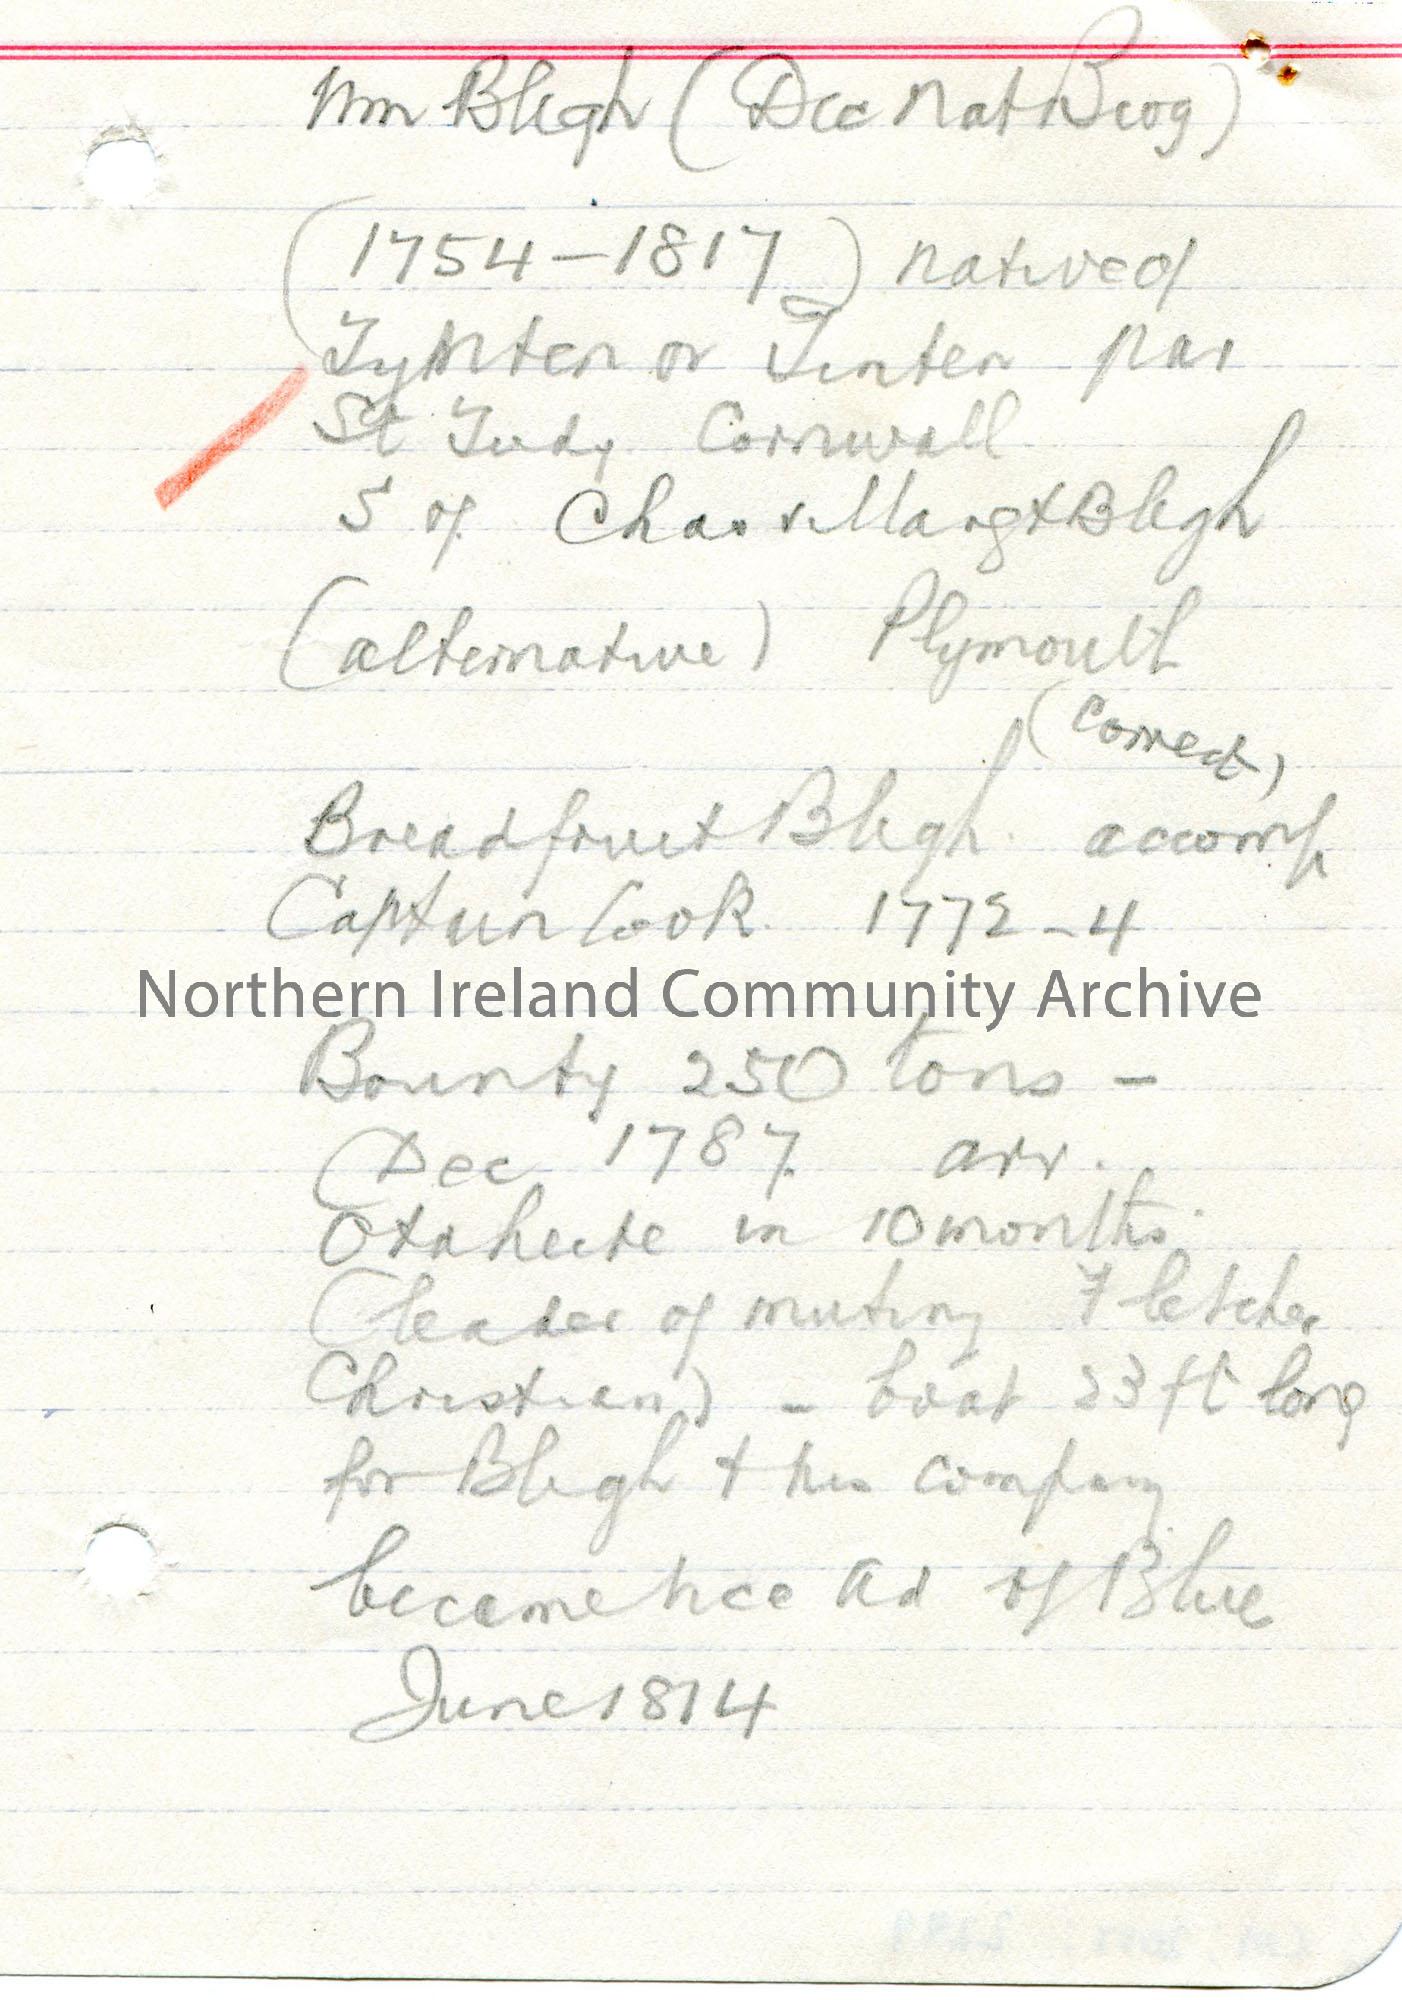 Wm Bligh (Dic Nat Biog)
(1754-1817) native of
Tynten or Tinten par
St Tudy Cornwall
S of Chas & Margt Bligh
(alternative) Plymouth
(correct)
Breadfruit Bligh. accomp
Captain Cook. 1772-4
Northern Ireland Community Archive
Bounty 250 tons -
(Dec 1787. arr.
Otaheite in 10 months.
(leader of mutiny Fletcher
Christian) - boat 23 ft long
for Bligh + his company
became Vice Ad of Blue
June 1814